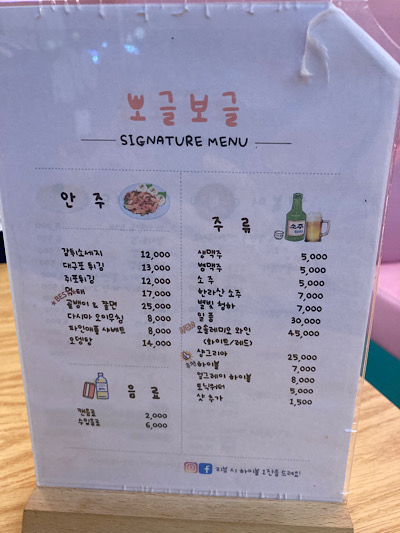 뽀글보글
SIGNATURE MENU
안 주
감튀소세지 12,000
대구포 튀김 13,000
쥐포튀김 12,000
먹태 17,000
골뱅이 & 쫄면 25,000
다시마 오이무침 8,000
파인애플 샤베트 8,000
오뎅탕 14,000
음 료
캔음료 2,000
수입음료 6,000
주 류
소주
생맥주 5,000
병맥주 5,000
소 주 5,000
한라산 소주 7,000
별빛 청하 7,000
일 품 30,000
오를레디오 와인 45,000
(화이트/레드)
샹그리아 25,000
하이볼 7,000
얼그레이 하이볼 8,000
토닉워터 5,000
샷 추가 1,500
리뷰 시 하이볼 1잔을 드려요!